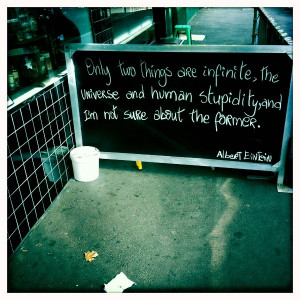 Only two things are infinite, the
universe and human stupidity, and
I'm not sure about the former.
Albert Einstein